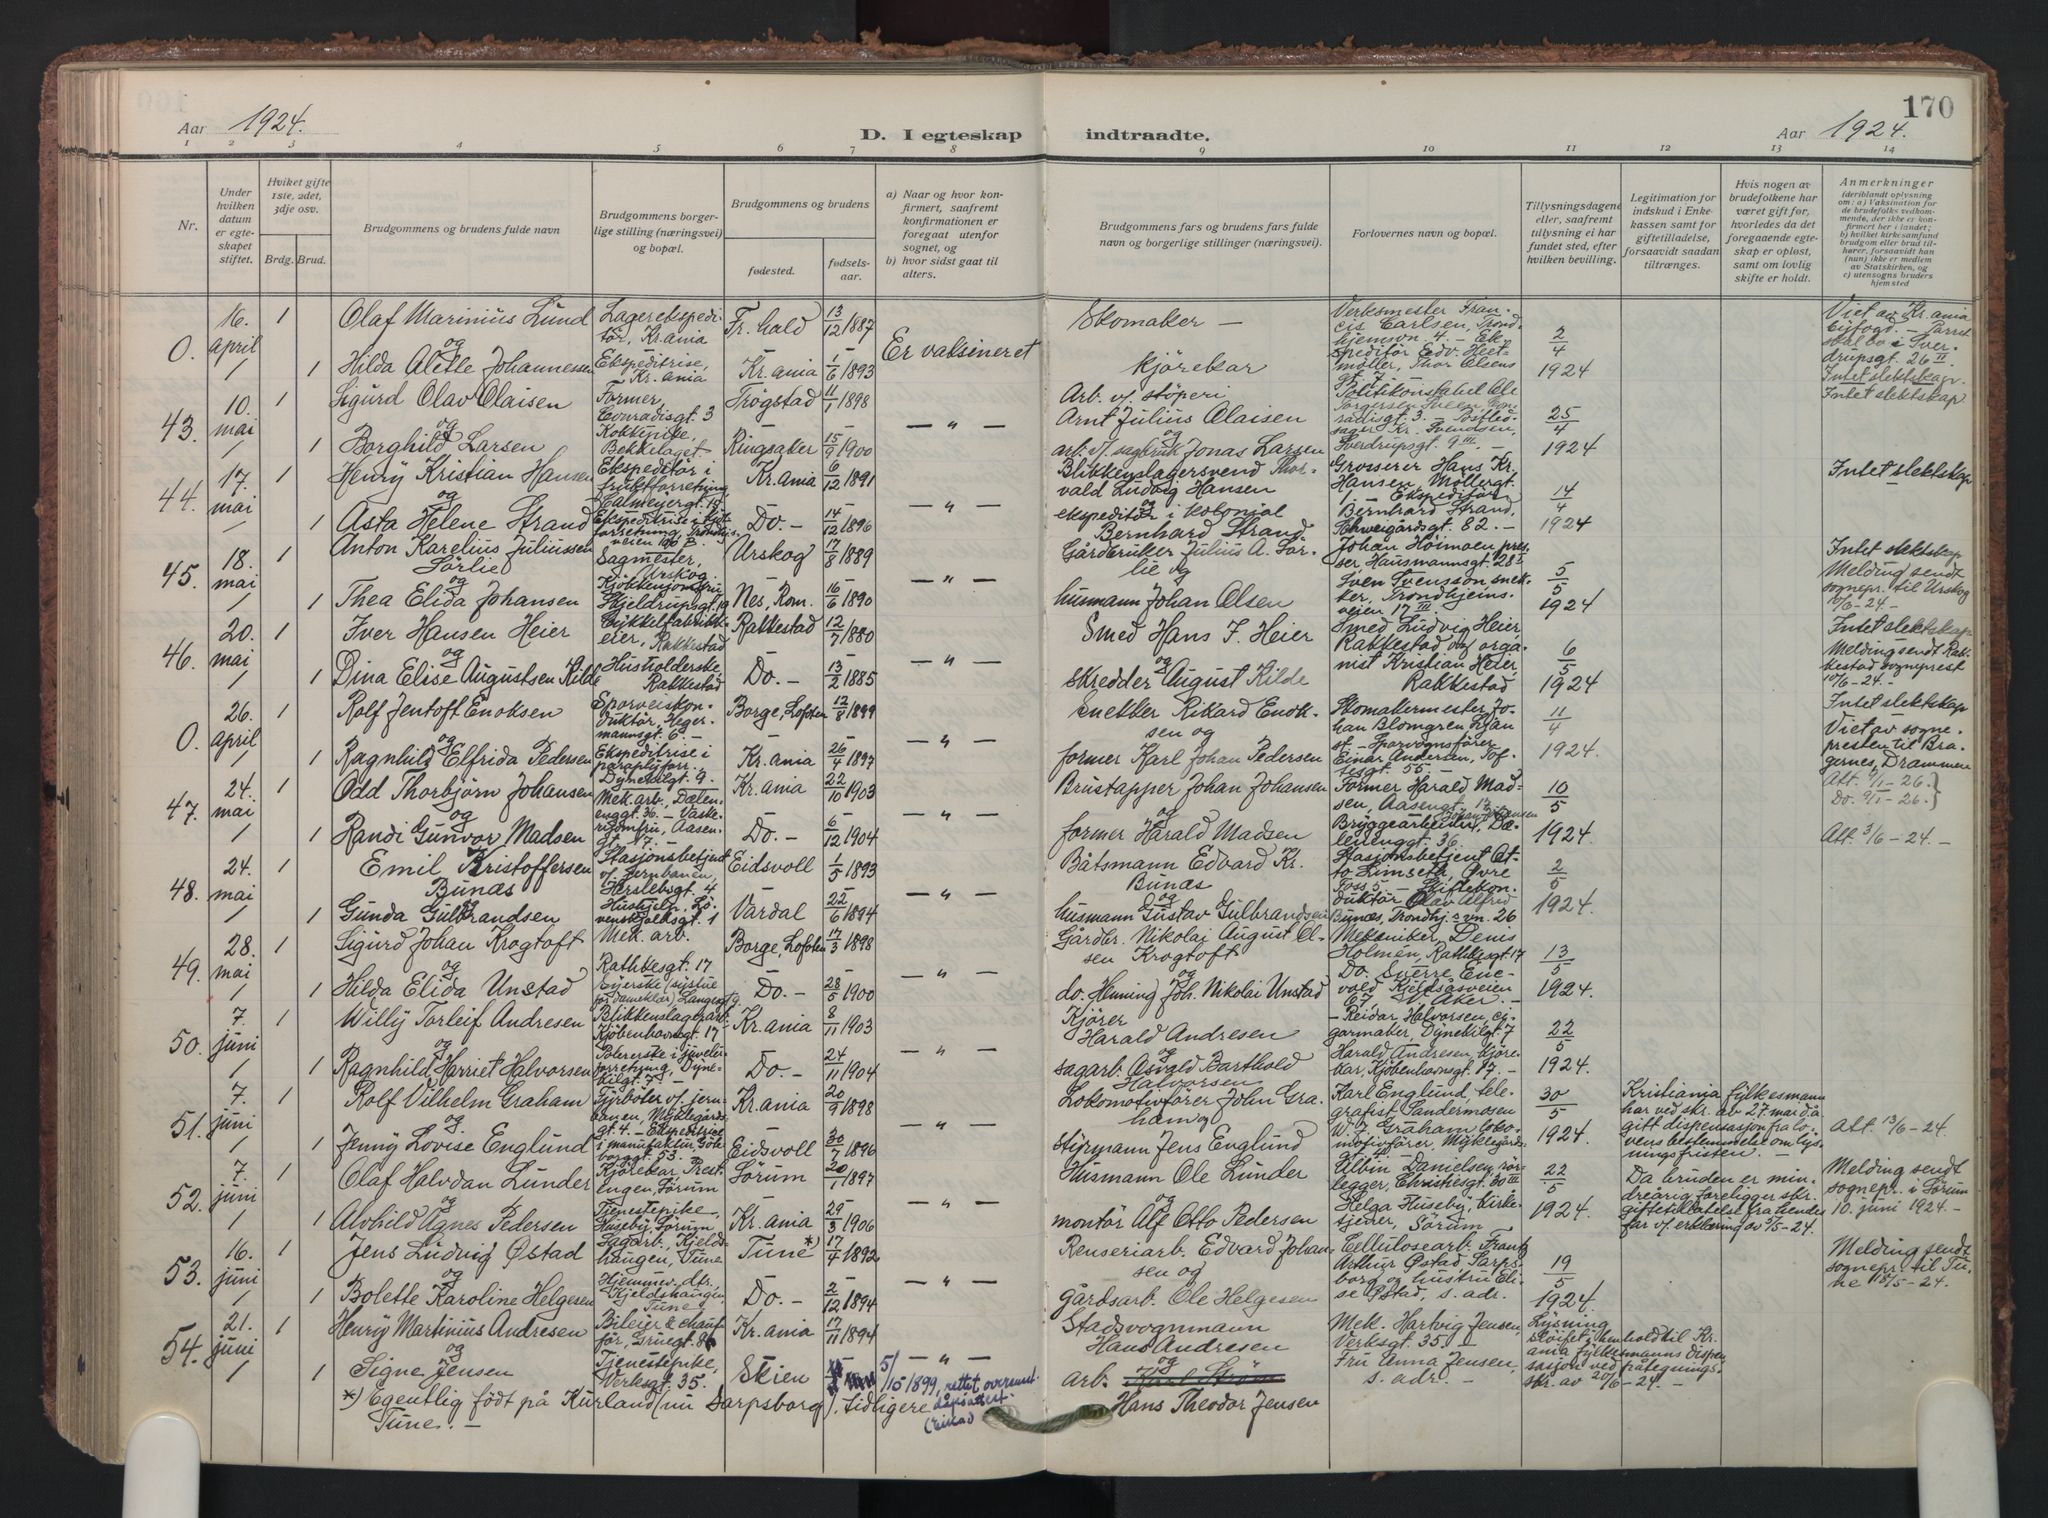 170
Aar 1924.
D. I egteskap indtraadte.
Aar 1924.
1 2 3 4 5 6 7 8 9 10 11 12 13 14
Nr.
Under hvilken datum er egteskapet stiftet.
Hviket gifte 1ste, 2det, 3dje osv.
Brdg. Brud.
Brudgommens og brudens fulde navn
Brudgommens borgerlige stilling (næringsvei) og bopæl.
Brudgommens og brudens
fødested.
fødselsaar.
a) Naar og hvor konfirmert, saafremt konfirmationen er foregaat utenfor sognet, og
b) hvor sidst gaat til alters.
Brudgommens fars og brudens fars fulde navn og borgerlige stillinger (næringsvei).
Forlovernes navn og bopæl.
Tillysningsdagene eller, saafremt tillysning ei har fundet sted, efter hvilken bevilling.
Legitimation for indskud i Enkekassen samt for giftetilladelse, forsaavidt saadan tiltrænges.
Hvis nogen av brudefolkene har været gift før, hvorledes da det foregaaende egteskap er opløst, samt om lovlig skifte er holdt.
Anmerkninger (deriblandt oplysning om: a) Vaksination for de brudefolks vedkommende, der ikke er konfirmert her i landet; b) hvilket kirkesamfund brudgom eller brud tilhører, forsaavidt han (hun) ikke er medlem av Statskirken, og c) utensogns bruders hjemsted
0. 16. april 1 Olaf Marinius Lund Lagerekspeditör, Kr.ania Fr.hald 13/12 1887 Er vaksineret Skomaker — Verksmester Francis Carlsen, Trondhjemsvn. 4. — Ekspeditör Edv. Heetmöller, Thor Olsens gt. 7 2/4 1924 Viet av Kr.ania byfogd.
og
1 Hilda Alette Johannessen Ekspeditrise, Kr.ania Kr.ania 1/6 1893 kjörekar Intet slektskap.
43. 10. mai 1 Sigurd Olav Olaisen Former, Conradisgt. 3 Trögstad 11/1 1898 — " — Arb. v. stöperi Arnt Julius Olaisen Politikonstabel Ole 25/4 1924 Intet slektskap
og
1 Borghild Larsen Kokkepike, Bekkelaget Ringsaker 15/9 1900 arb. v. sagbruk Jonas Larsen Sverdrupsgt. 9 III
44. 17. mai 1 Henry Kristian Hansen Ekspeditör i fruktforretning, Calmeyersgt. Kr.ania 6/12 1891 — " — Blikkenslagersvend Thorvald Ludvig Hansen Grosserer Hans Kr. Hansen, Möllergt. 1. — Ekspeditör Bernhard Strand, Schweigårdsgt. 82. — 14/4 1924 Intet slektskap
og
1 Asta Helene Strand Ekspeditrise Do. — 14/12 1896 ekspeditör i kolonial Bernhard Strand
45. 18. mai 1 Anton Karelius Juliussen Sörlie Sagmester, Urskog Urskog 17/8 1889 — " — Gårdbruker Julius A. Sörlie og Johan Höimoen presser, Hausmannsgt. 28 I Sven Svensson snekker, Trondhjemsveien 17 III 5/5 1924 Intet slektskap Melding sendt sognepr. til Urskog 10/6-24. —
og
1 Thea Elida Johansen Kjökkenjomfru Skjeldrupsgt. 19 Nes, Rom. 16/6 1890 husmann Johan Olsen
46. 20. mai 1 Iver Hansen Heier Rakkestad 12/7 1880 — " — Smed Hans I. Heier Smed Ludvig Heier, Rakkestad og organist Kristian Heier, Rakkestad 6/5 1924 Intet slektskap Melding sendt Rakkestad sogneprest 10/6-24. —
og
1 Dina Elise Augustsen Kilde Husholderske Rakkestad Do. — 13/2 1885 skredder August Kilde
0. 26. april 1 Rolf Jentoft Enoksen Sporveiskonduktör, Hegermannsgt. 6. — Borge, Lofoten 12/8 1899 — " — snekker Rikard Enoksen og Skomakermester Johan Blomgren 11/4 1924. Intet slektskap Viet av sognepresten til Bragernes, Drammen
og
1 Ragnhild Elfrida Pedersen Ekspeditrise i paraplyforr. Dynekilgt. 9. Kr.ania 26/4 1897 former Karl Johan Pedersen Sporvognsförer Einar Andersen, Toftesgt. 55. —
47. 24. mai 1 Odd Thorbjörn Johansen Mek. arb., Dælenenggt. 36. — Kr.ania 22/10 1903 — " — Brustapper Johan Johansen Former Harald Madsen, Aasengt. 17 Johan Johansen Bryggearbeider, Dælenenggt. 36 10/5 1924 Att. 9/1-26. Do. 9/1-26.
og
1 Randi Gunvor Madsen Do. — 6/12 1904 former Harald Madsen Att. 3/6-24. —
48. 24. mai 1 Emil Kristoffersen Bunæs Stasjonsbetjent v. Jernbanen, Herslebsgt. 4 Eidsvoll 1/5 1893 — " — Båtsmann Edvard Kr. Bunæs Stasjonsbetjent Otto Limseth, Övre Foss 5 — Skiftekonduktör Olav Alfred Bunæs, Trondhj.s vn. 26 2/5 1924.
og
1 Gunda Gulbrandsen Hushjelp, Lövenskjoldsgt. 1 Vardal 22/6 1894 husmann Gustav Gulbrandsen
49. 28. mai 1 Sigurd Johan Krogtoft Mek. arb. Rathkesgt. 17 Borge, Lofoten 17/3 1898 — " — Gårdbr. Nikolai August Olsen Krogtoft Mekaniker, Denis Holmen, Rathkesgt. 17 Do. Sverre Enevold, Kjelsåsveien 67, V. Aker. — 13/5 1924.
og
1 Hilda Elida Unstad Syerske (systue for dameklær) Langesgt. 9. Do. — 28/5 1900 do. Heming Joh. Nikolai Unstad
50. 7. juni 1 Willy Torleif Andresen Blikkenslagerarb. Kjöbenhavnsgt. 17 Kr.ania 8/11 1903 — " — Kjörer Harald Andresen Reidar Halvorsen, cigarmaker, Dynekilgt. 7 Harald Andresen, kjörekar, Kjöbenhavnsgt. 17. — 22/5 1924.
og
1 Ragnhild Harriet Halvorsen Polererske i juvelerforretning, Dynekilgt. 7 — Do. — 24/11 1904 sagarb. Osvald Barthold Halvorsen
51. 7. juni 1 Rolf Vilhelm Graham Fyrböter v. jernbanen, Myklegårdsgt. 4. — Kr.ania 20/9 1898 — " — Lokomotivförer John Graham og Karl Englund, telegrafist, Sandermosen W. J. Graham lokomotivförer, Myklegårdsgt. 4. — 30/5 1924. Kristiania fylkesmann har ved skr. av 27. mai d.å. gitt dispensasjon fra lovens bestemmelse om lysningsfristen. — Att. 13/6-24.
og
1 Jenny Lovise Englund Ekspeditrice i manufaktur, Göteborggt. 53. Eidsvoll 30/7 1896 styrmann Jens Englund
52. 7. juni 1 Olaf Halvdan Lunder Kjörekar Prestengen, Sörum Sörum 20/1 1897 — " — Husmann Ole Lunder Albin Danielsen, rörlegger, Christiesgt. 30 III Helga Huseby, kirketjener, Sörum 22/5 1924. Da bruden er mindreårig foreligger skr. giftetillatelse fra hendes far v. erklæring av 2/5-24. Melding sendt sognepr. i Sörum 10. juni 1924. —
og
1 Alvhild Agnes Pedersen Tjenestepike, Huseby, Sörum Kr.ania 29/3 1906 montör Alf Otto Pedersen
53. 16. juni 1 Jens Ludvig Østad Sagarb., Kjeldshaugen, Tune Tune *) 17/4 1892 — " — Renseriarb. Edvard Johansen og Cellulosearb. Frantz Arthur Østad, Sarpsborg og hustru Elise Østad, s. adr. 19/5 1924. Melding sendt sognepr. til Tune 18/5-24.
og
1 Bolette Karoline Helgesen Hjemmev. dtr., Kjeldshaugen, Tune Do. — 2/12 1894 gårdsarb. Ole Helgesen
54. 21. juni 1 Henry Martinius Andresen Bileier & chaufför, Grüegt. Kr.ania 17/11 1894 — " — Stadsvognmann Hans Andresen Mek. Hartvig Jensen, Verksgt. 35 Fru Anna Jensen, s. adr. — Lysning slöifet i henhold til Kr.ania fylkesmanns dispensasjon ved påtegnings skr. av 20/6-24. —
og
1 Signe Jensen Tjenestepike, Verksgt. 35. Skien 5/10 1899, rettet overensst. dåpsattest arb. Karl Ström Hans Theodor Jensen
*) Egentlig födt på Kurland (nu Sarpsborg), tidligere Tune. —